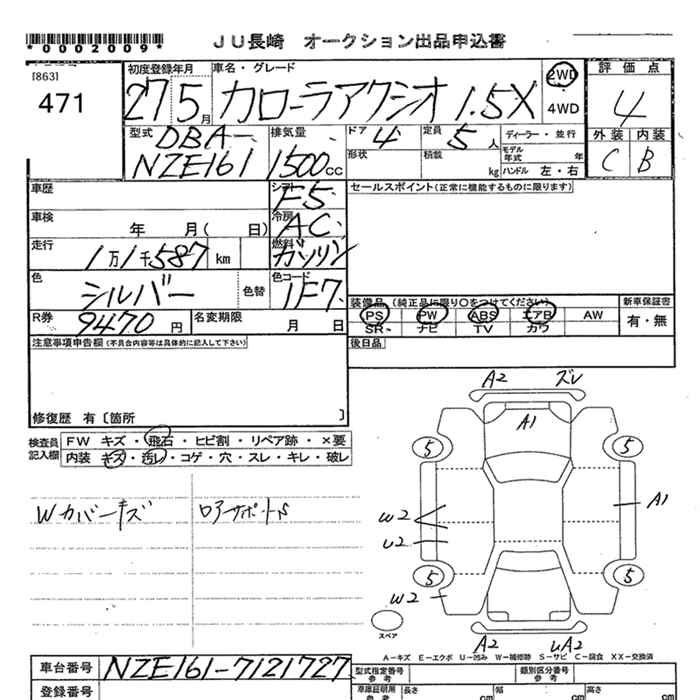 *0002009*
JU長崎 オークション出品申込書
[863]
471
初度登録年月
27 5月
車名・グレード
カローラアクシオ 1.5X
2WD
4WD
評価点
4
外装 内装
C B
型式
DBA-
NZE161
排気量
1500cc
ドア 4
形状
定員 5人
積載 kg
ディーラー・並行
モデル年式 年
ハンドル 左・右
車歴
シフト
F5
セールスポイント(正常に機能するものに限ります)
車検 年 月(日)
冷房
AC
走行
1万1千587km
燃料
ガソリン
色
シルバー
色替
色コード
1F7
装備品(純正品に限り○をつけてください)
PS PW ABS エアB AW
SR ナビ TV カワ
新車保証書
有・無
R券
9470円
名変期限
月 日
後日品
注意事項申告欄(不具合内容等は具体的に記入して下さい)
修復歴 有〔箇所 〕
検査員記入欄
FW キズ・飛石・ヒビ割・リペア跡・×要
内装 キズ・汚レ・コゲ・穴・スレ・キレ・破レ
Wカバーキズ
ロアサポートS
A2 ズレ
A1
5 5
W2
A1
U2
5 5
W2
スペア
A2 UA2
A-キズ E-エクボ U-凹み W-補修跡 S-サビ C-腐食 XX-交換済
車台番号
NZE161-7121727
型式指定番号
参考
類別区分番号
参考
登録番号
車庫証明用
参考
長さ cm
幅 cm
高さ cm